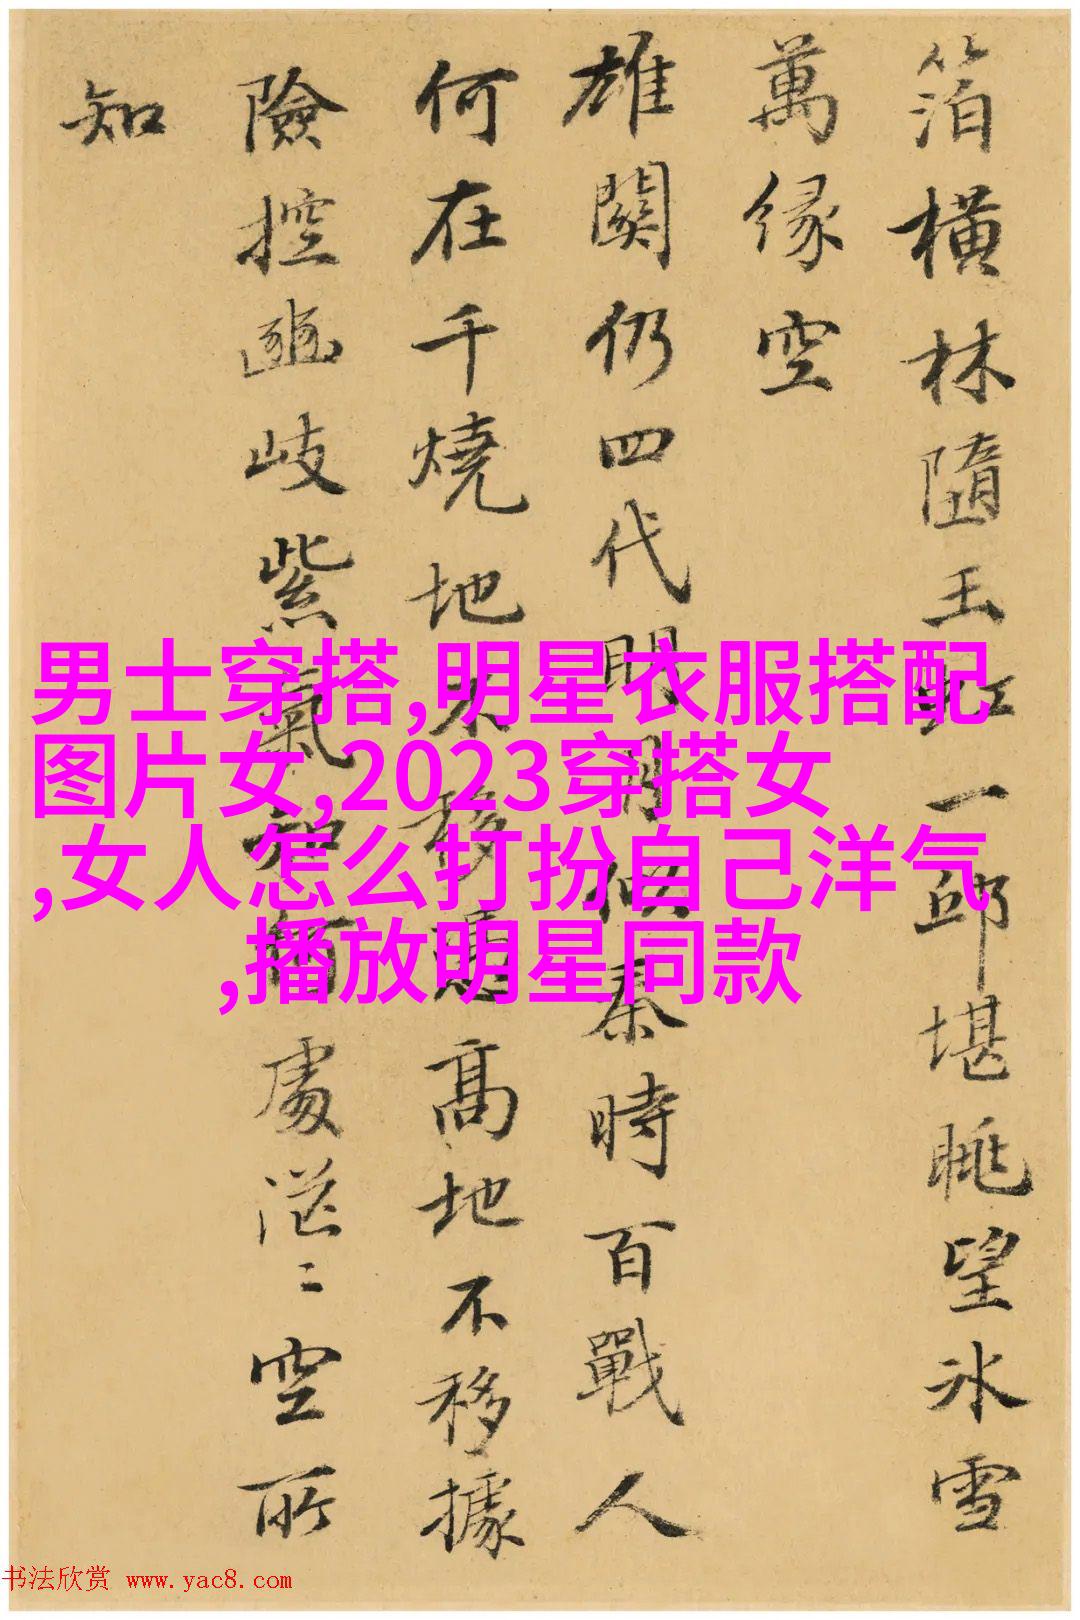 箔橫林隨玉虹一邱堪眺望冰雪
萬緣空
雄關仍四代明月似秦時百戰人
何在千燒地不移馬高地不移據
險控豳岐紫氣知何處茫〻空所
知
男士穿搭,明星衣服搭配
图片女,2023穿搭女
,女人怎么打扮自己洋气
,播放明星同款
书法欣赏 www.yac8.com